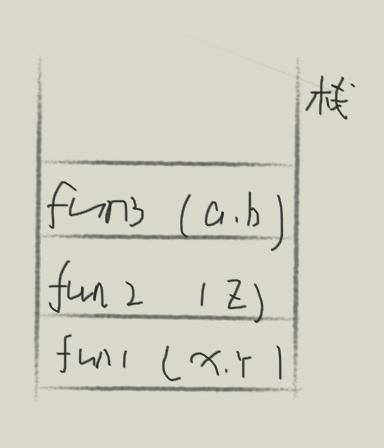 栈
fun3 (a.b)
fun 2 (z)
fun1 (x.r)